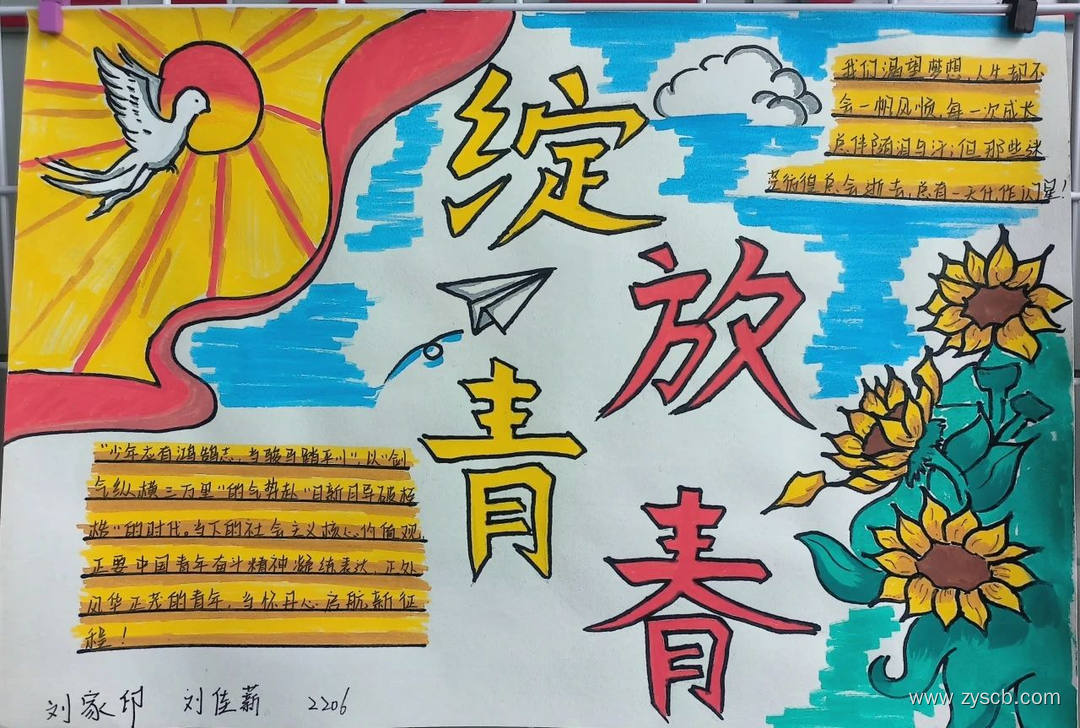 绽放
青春
我们渴望梦想,人生都不
会一帆风顺,每一次成长
总伴随泪与汗,但那些迷
茫彷徨总会逝去,总有一天化作闪星!
"少年应有鸿鹄志,当骏马踏平川",以"剑
气纵横三万里"的气势赴"日新月异破桎
梏"的时代。当下的社会主义核心价值观,
正要中国青年奋斗精神凝练表达,正处
风华正茂的青年,当怀丹心启航新征
程!
刘家印 刘佳薪 2206
www.zyscb.com